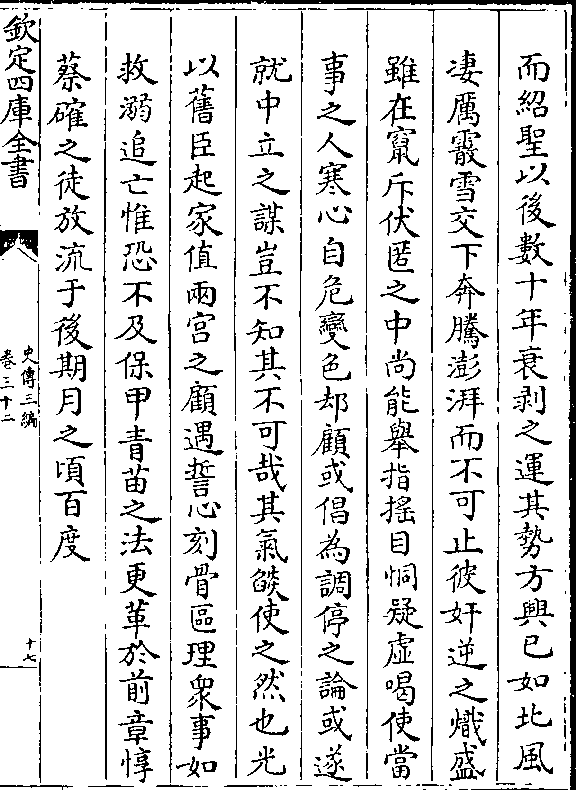 而紹聖以後數十年衰剥之運其勢方興已如北風
淒厲霰雪交下奔騰澎湃而不可止彼奸逆之熾盛
雖在竄斥伏匿之中尚能舉指搖目恫疑虛喝使當
事之人寒心自危變色却顧或倡為調停之論或遂
就中立之謀豈不知其不可哉其氣燄使之然也光
以舊臣起家值兩宫之顧遇誓心刻骨區理衆事如
救溺追亡惟恐不及保甲青苗之法更革於前章惇
蔡確之徒放流于後期月之頃百度
欽定四庫全書
史傳三編
卷三十二
十七